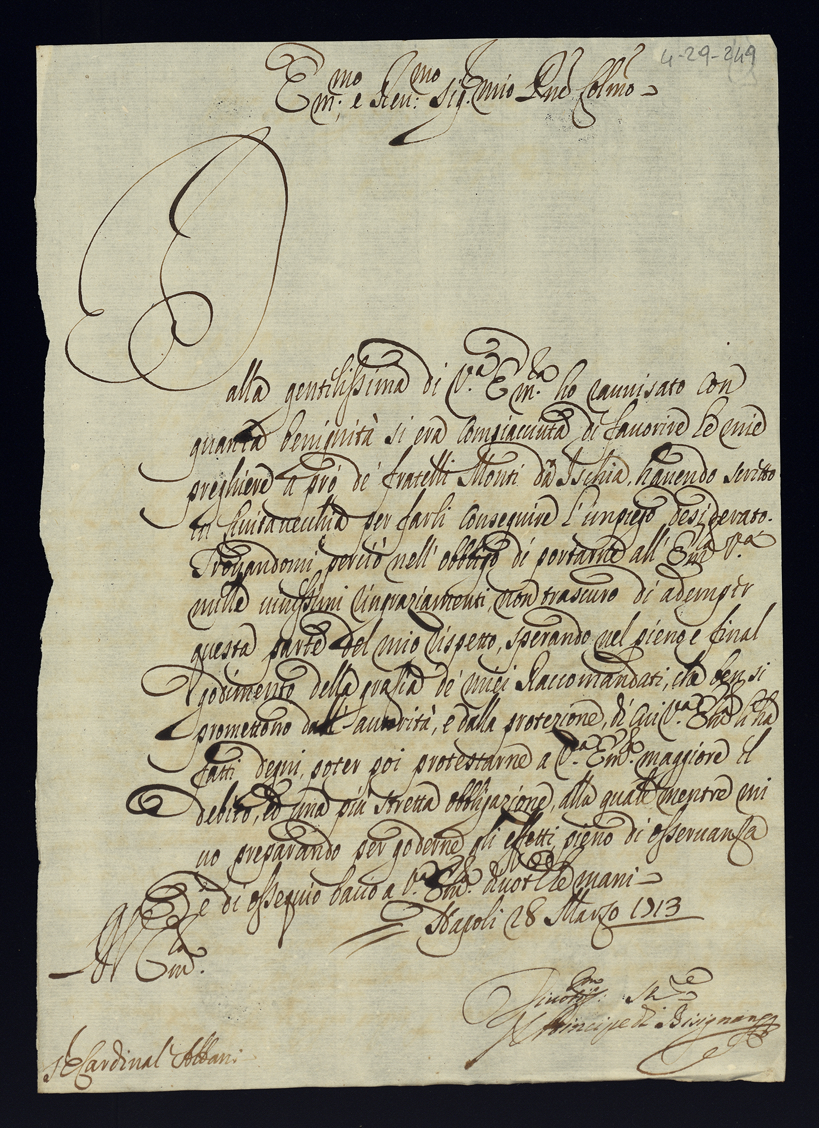 4-29-249
Em.mo e Rev.mo Sig.r mio P.ne Col.mo
Dalla gentilissima di V.a Em.za ho ravvisato con
quanta benignità si era compiacciuta di favorire le mie
preghiere a prò de' fratelli Monti da Ischia, havendo scritto
in Civitavecchia per farli conseguire l'impiego desiderato.
Trovandomi perciò nell'obbligo di portarne all'Em.za V.a
mille vivissimi ringraziamenti, non trascuro di adempir
questa parte del mio rispetto, sperando nel pieno, e final
godimento della grazia de' miei Raccomandati, che ben si
promettono dall'autorità, e dalla protezione, di cui V.a Em.za li ha
fatti degni, poter poi protestarne a V.a Em.za maggiore il
debito, ed una più stretta obbligazione, alla quale mentre mi
vo preparando per goderne gli effetti pieno di osservanza
e di ossequio bacio a V.a Em.za divot.te le mani
Napoli 28 Marzo 1713
Em.za
Il Principe di Bisignano
Sr Cardinal Albani